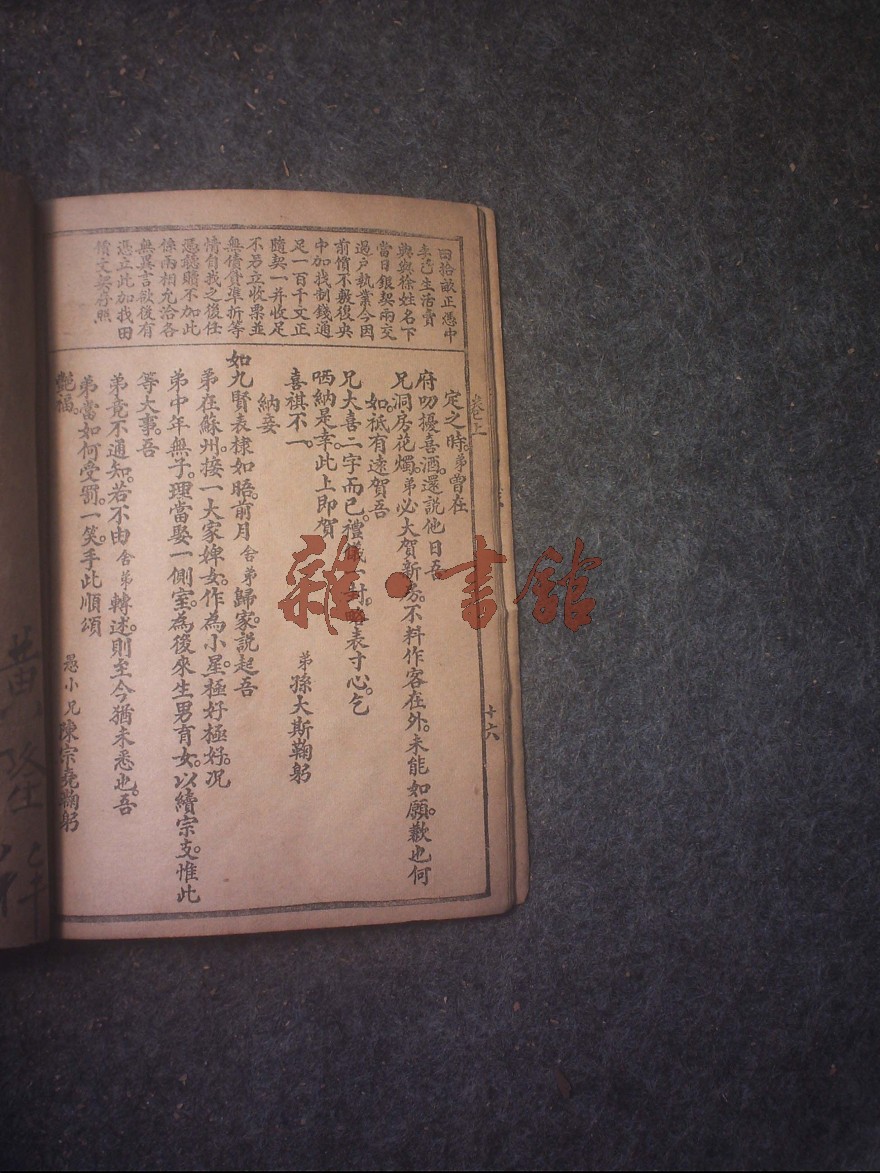 田拾畝正憑中
李己生活賣
與與徐姓名下
當日銀契兩交
過户執業今因
前價不敷復央
中加找制錢通
足一百千文正
隨契一并收足
不另立收票並
無債貨準折等
情自我之後任
憑聽贖不加此
係兩相允洽各
無異言欲後有
憑立此加找田
價文契存照
卷上
十六
定之時。弟曾在
府叨擾喜酒。還説他日吾
兄洞房花燭。弟必大賀新房。不料作客在外。未能如願。歉也何
如。祇有遠賀吾
兄大喜二字而已。禮儀一封。略表寸心。乞
哂納是幸。此上即賀
喜祺不一。 弟孫大斯鞠躬
納妾
如九賢表棣如晤。前月舍弟歸家。説起吾
弟在蘇州。接一大家婢女。作為小星。極好極好。况
弟中年無子。理當娶一側室。為後來生男育女。以續宗支。惟此
等大事。吾
弟竟不通知。若不由舍弟轉述。則至今猶未悉也。吾
弟當如何受罰。一笑。手此順頌
艷福。 愚小兄陳宗堯鞠躬
雜·書館
黄